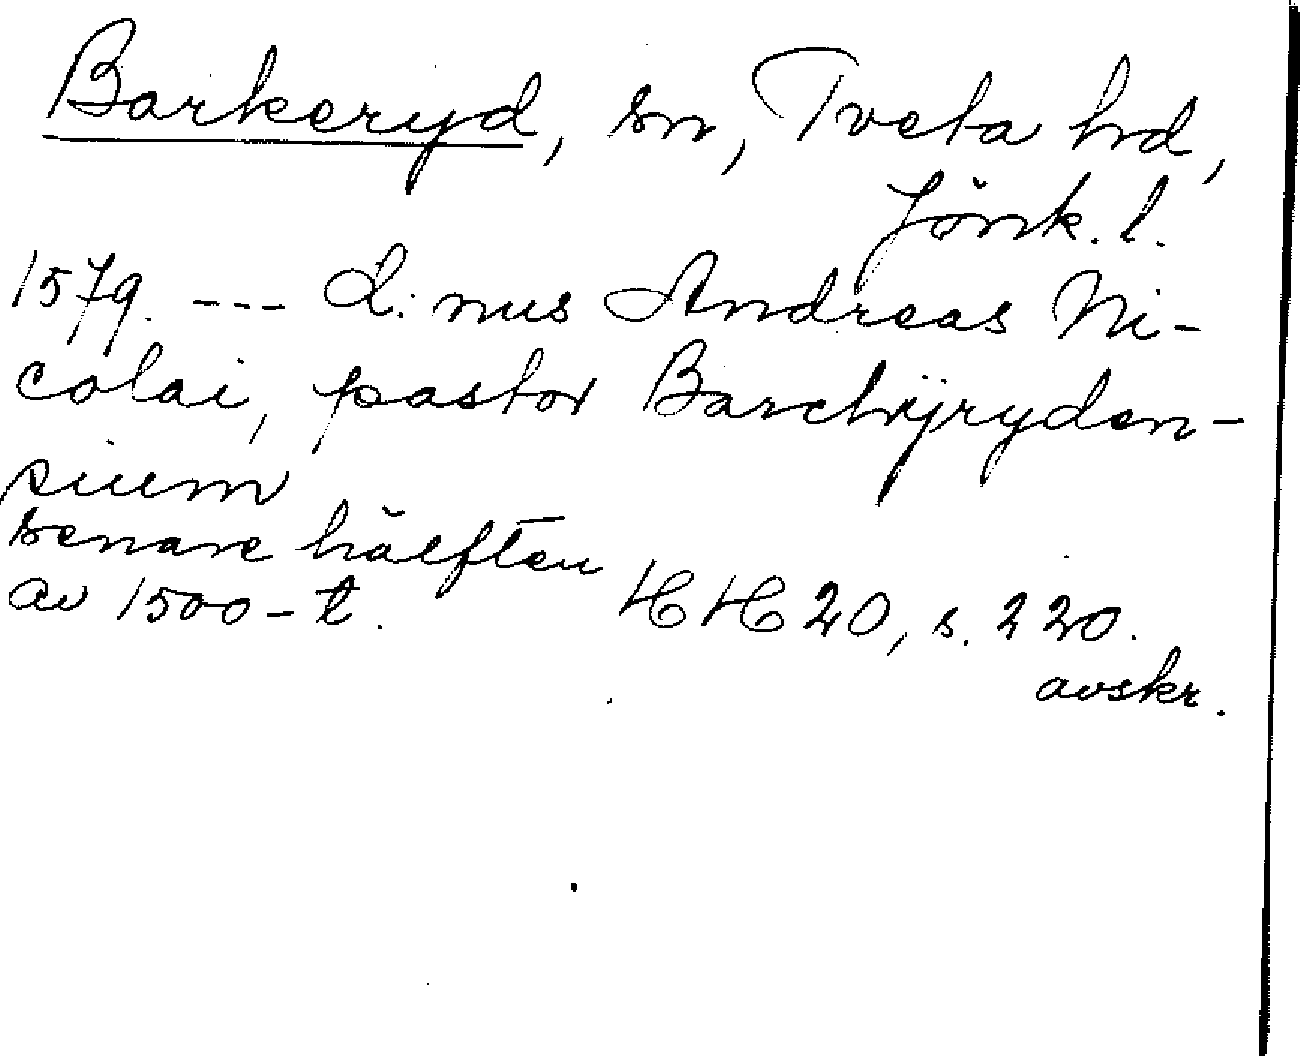 Barkeryd, sn, Tveta hd,
Jönk. l.
1579. --- D:nus Andreas Ni-
colai, pastor Barchÿryden-
sium
senare hälften
av 1500-t. HH 20, s. 220.
avskr.